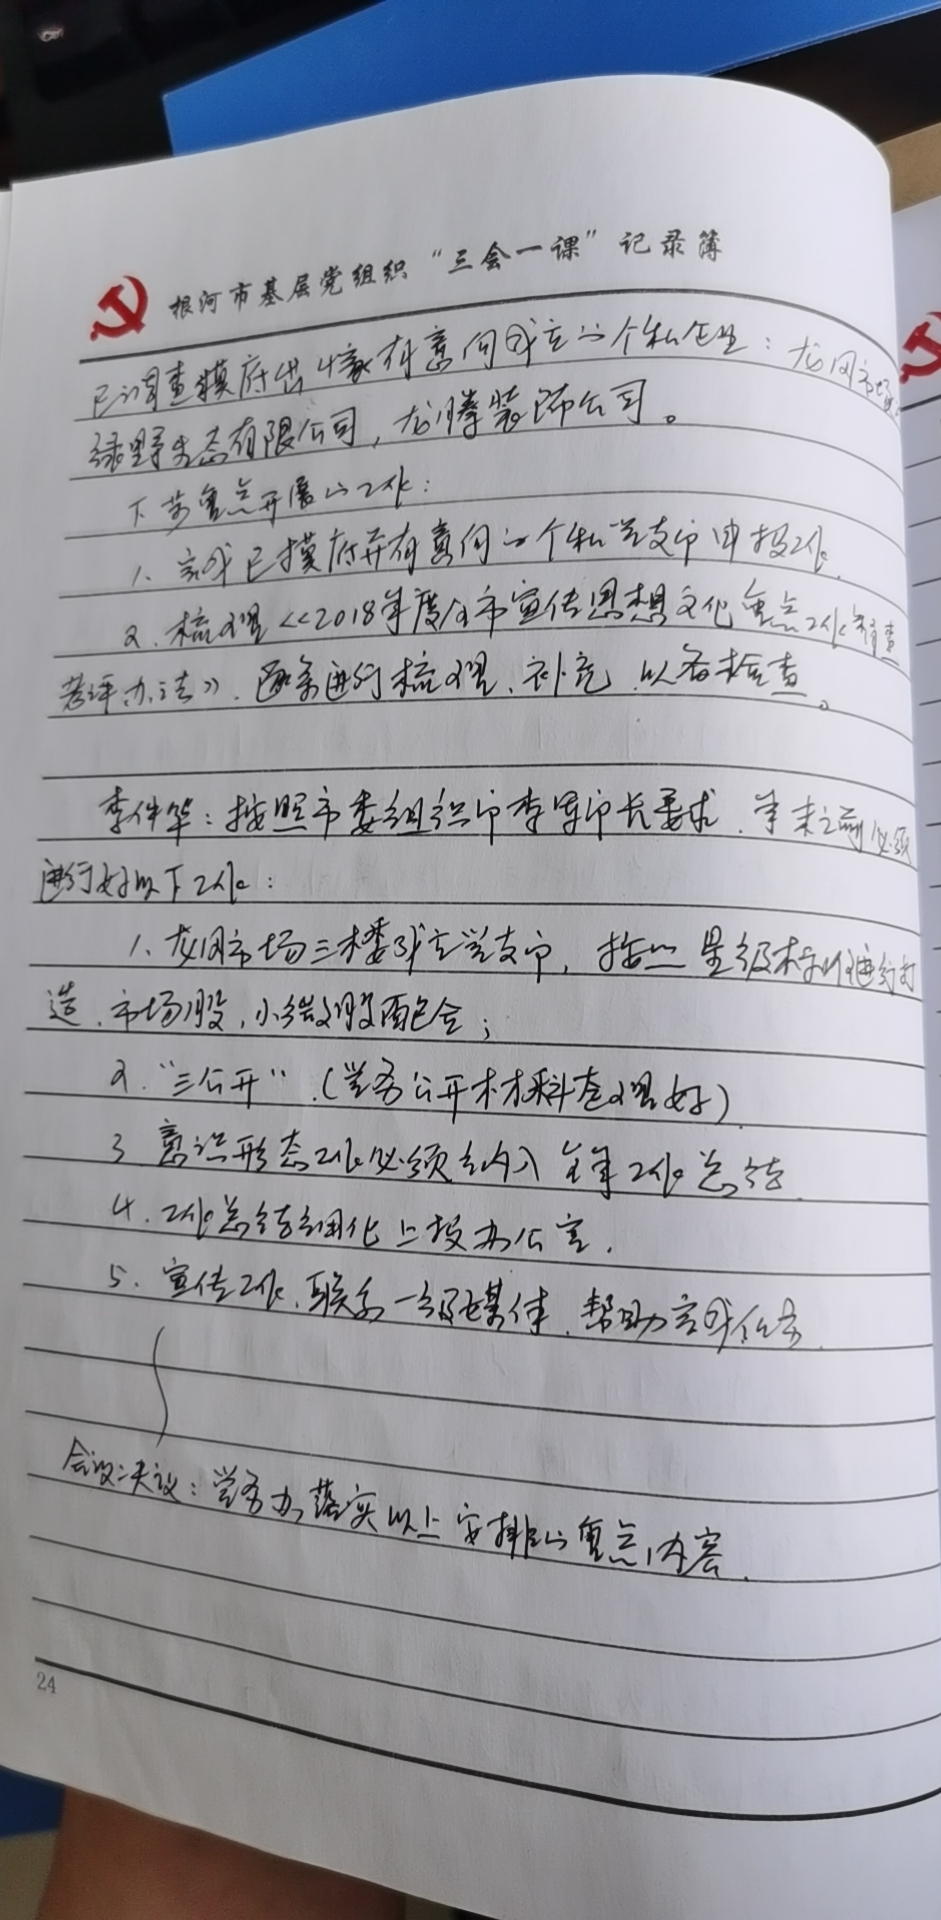 根河市基层党组织“三会一课”记录簿
已调查摸底出4家有意向成立的个私企业：龙凤市场、
绿野生态有限公司，龙腾装饰公司。
下步重点开展的工作：
1、完成已摸底并有意向的个私党支部申报工作。
2、梳理《2018年度全市宣传思想文化重点工作督查
考评办法》，逐条进行梳理、补充，以备检查。
李伟华：按照市委组织部李部长要求，年末之前必须
进行好以下工作：
1、龙凤市场三楼成立党支部，按照星级标准进行打
造，市场股，小微股配合；
2、“三公开”（党务公开材料整理好）
3、意识形态工作必须纳入全年工作总结
4、工作总结细化上报办公室，
5、宣传工作，联系一级媒体，帮助完成任务。
会议决议：党务办落实以上安排的重点内容。
24